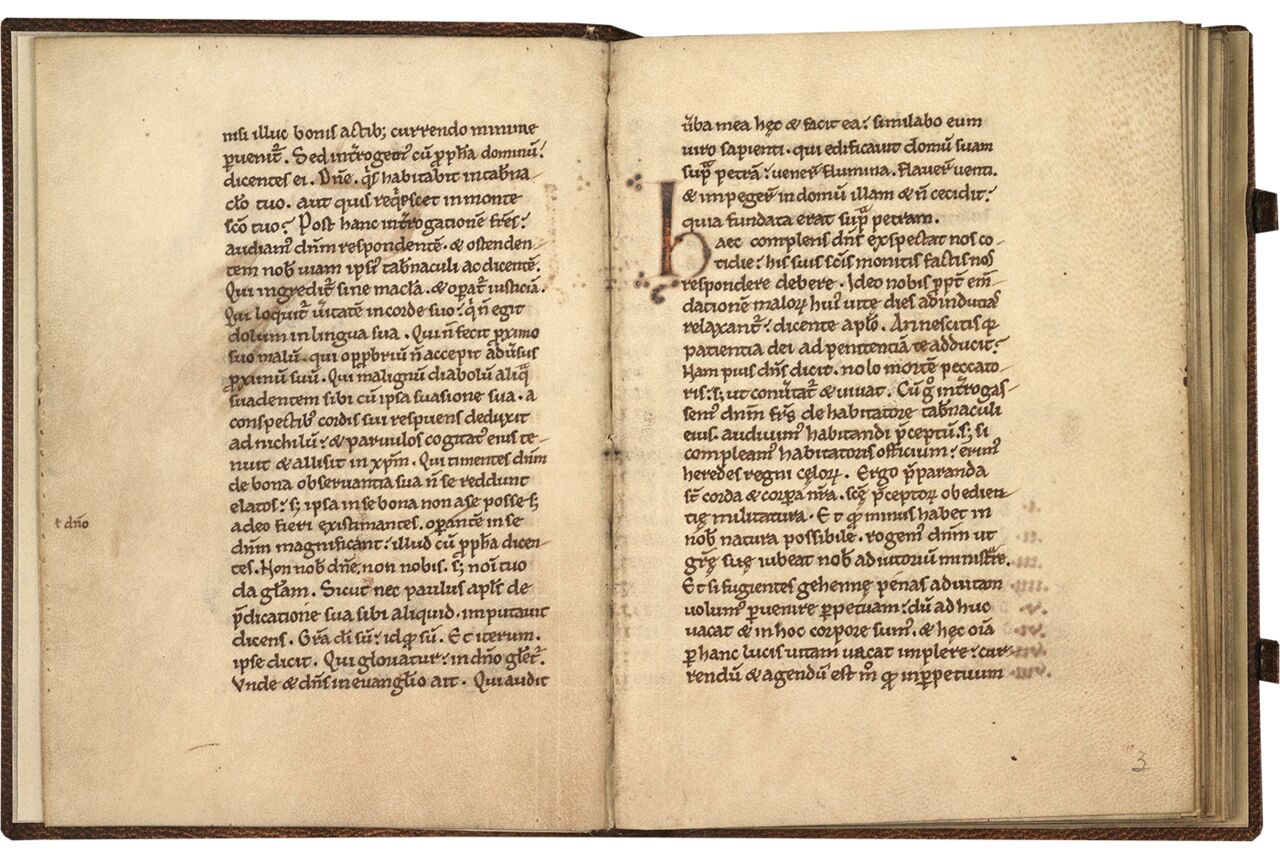 nisi illuc bonis actib; currendo minime
ꝑuenit᷑. Sed int̄rogem᷒ cū ꝓph̄a dominū:
dicentes ei. Dn̄e. q̊s habitabit in tab̄na-
clo tuo. aut quis req̊escet in monte
sc̄o tuo? Post hanc int̄rogationē fr̄es:
audiam᷒ dn̄m respondentē. & ostenden-
tem nob̄ uiam ipsi᷒ tab̄naculi ac dicentē.
Qui ingredit᷑ sine macla. & oꝑat᷑ iusticiā.
Qui loquit᷑ u̅itatē in corde suo: q̊ n̄ egit
dolum in lingua sua. Qui n̄ fecit ꝓximo
suo malū. qui opꝓbriū n̄ accepit adūsus
ꝓximū suū. Qui malignū diabolū aliqᷓ
suadentem sibi cū ipsa suasione sua. a
conspectib᷒ cordis sui respuens deduxit
ad nichilū: & paruulos cogitat᷒ eius te-
nuit & allisit in xp̄m. Qui timentes dn̄m
de bona obseruantia sua n̄ se reddunt
elatos: s; ipsa in se bona non a se posse s;
a deo fieri existimantes. oꝑantē in se
t dn̄o
dn̄m magnificant: illud cū ꝓph̄a dicen-
tes. Non nob̄ dn̄e. non nobis. s; noī tuo
da gl̄am. Sicut nec paulus apl̄s de
p̄dicatione sua sibi aliquid. imputauit
dicens. Gr̄a dī sū: id qđ sū. Et iterum.
ipse dicit. Qui gloriatur: in dn̄o gl̄et᷑.
Vnde & dn̄s in euangl̄io ait. Qui audit
u̅ba mea hęc & facit ea: similabo eum
uiro sapienti. qui edificauit domū suam
supᷓ petrā: uener̄ flumina. flauer̄ uenti.
& impeger̄ in domū illam & n̄ cecidit:
quia fundata erat supᷓ petram.
haec complens dn̄s exspectat nos co-
tidie: his suis sc̄is monitis factis nos
respondere debere. Ideo nobis ꝓpt᷑ em̄-
dationē maloꝝ hui᷒ uitę dies ad inducias
relaxant᷑: dicente apl̄o. An nescitis qꝫ
patientia dei ad penitentiā te adducit:
Nam pius dn̄s dicit. nolo mortē pecca­to-
ris: s; ut conu̅tat᷑ & uiuat. Cū g̊ int̄rogas-
sem᷒ dn̄m fr̄s de habitatore tab̄naculi
eius. audiuim᷒ habitandi p̄ceptū. s; si
compleam᷒ habitatoris officium: erim᷒
heredes regni cęloꝝ. Ergo p̄paranda
st̄ corda & corꝑa nr̄a. sc̄ę p̄ceptoꝝ obedien-
tię militatura. Et qđ minus habet in
nob̄ natura possibile. rogem᷒ dn̄m ut
gr̄ę suę iubeat nob̄ adiutorium ministr̄e.
Et si fugientes gehennę penas ad uitam
uolum᷒ ꝑuenire ꝑpetuam: dū adhuc
uacat & in hoc corpore sum᷒. & hęc oīa
ꝑ hanc lucis uitam uacat implere: cur-
rendū & agendū est m̊ qđ in ꝑpetuum
3